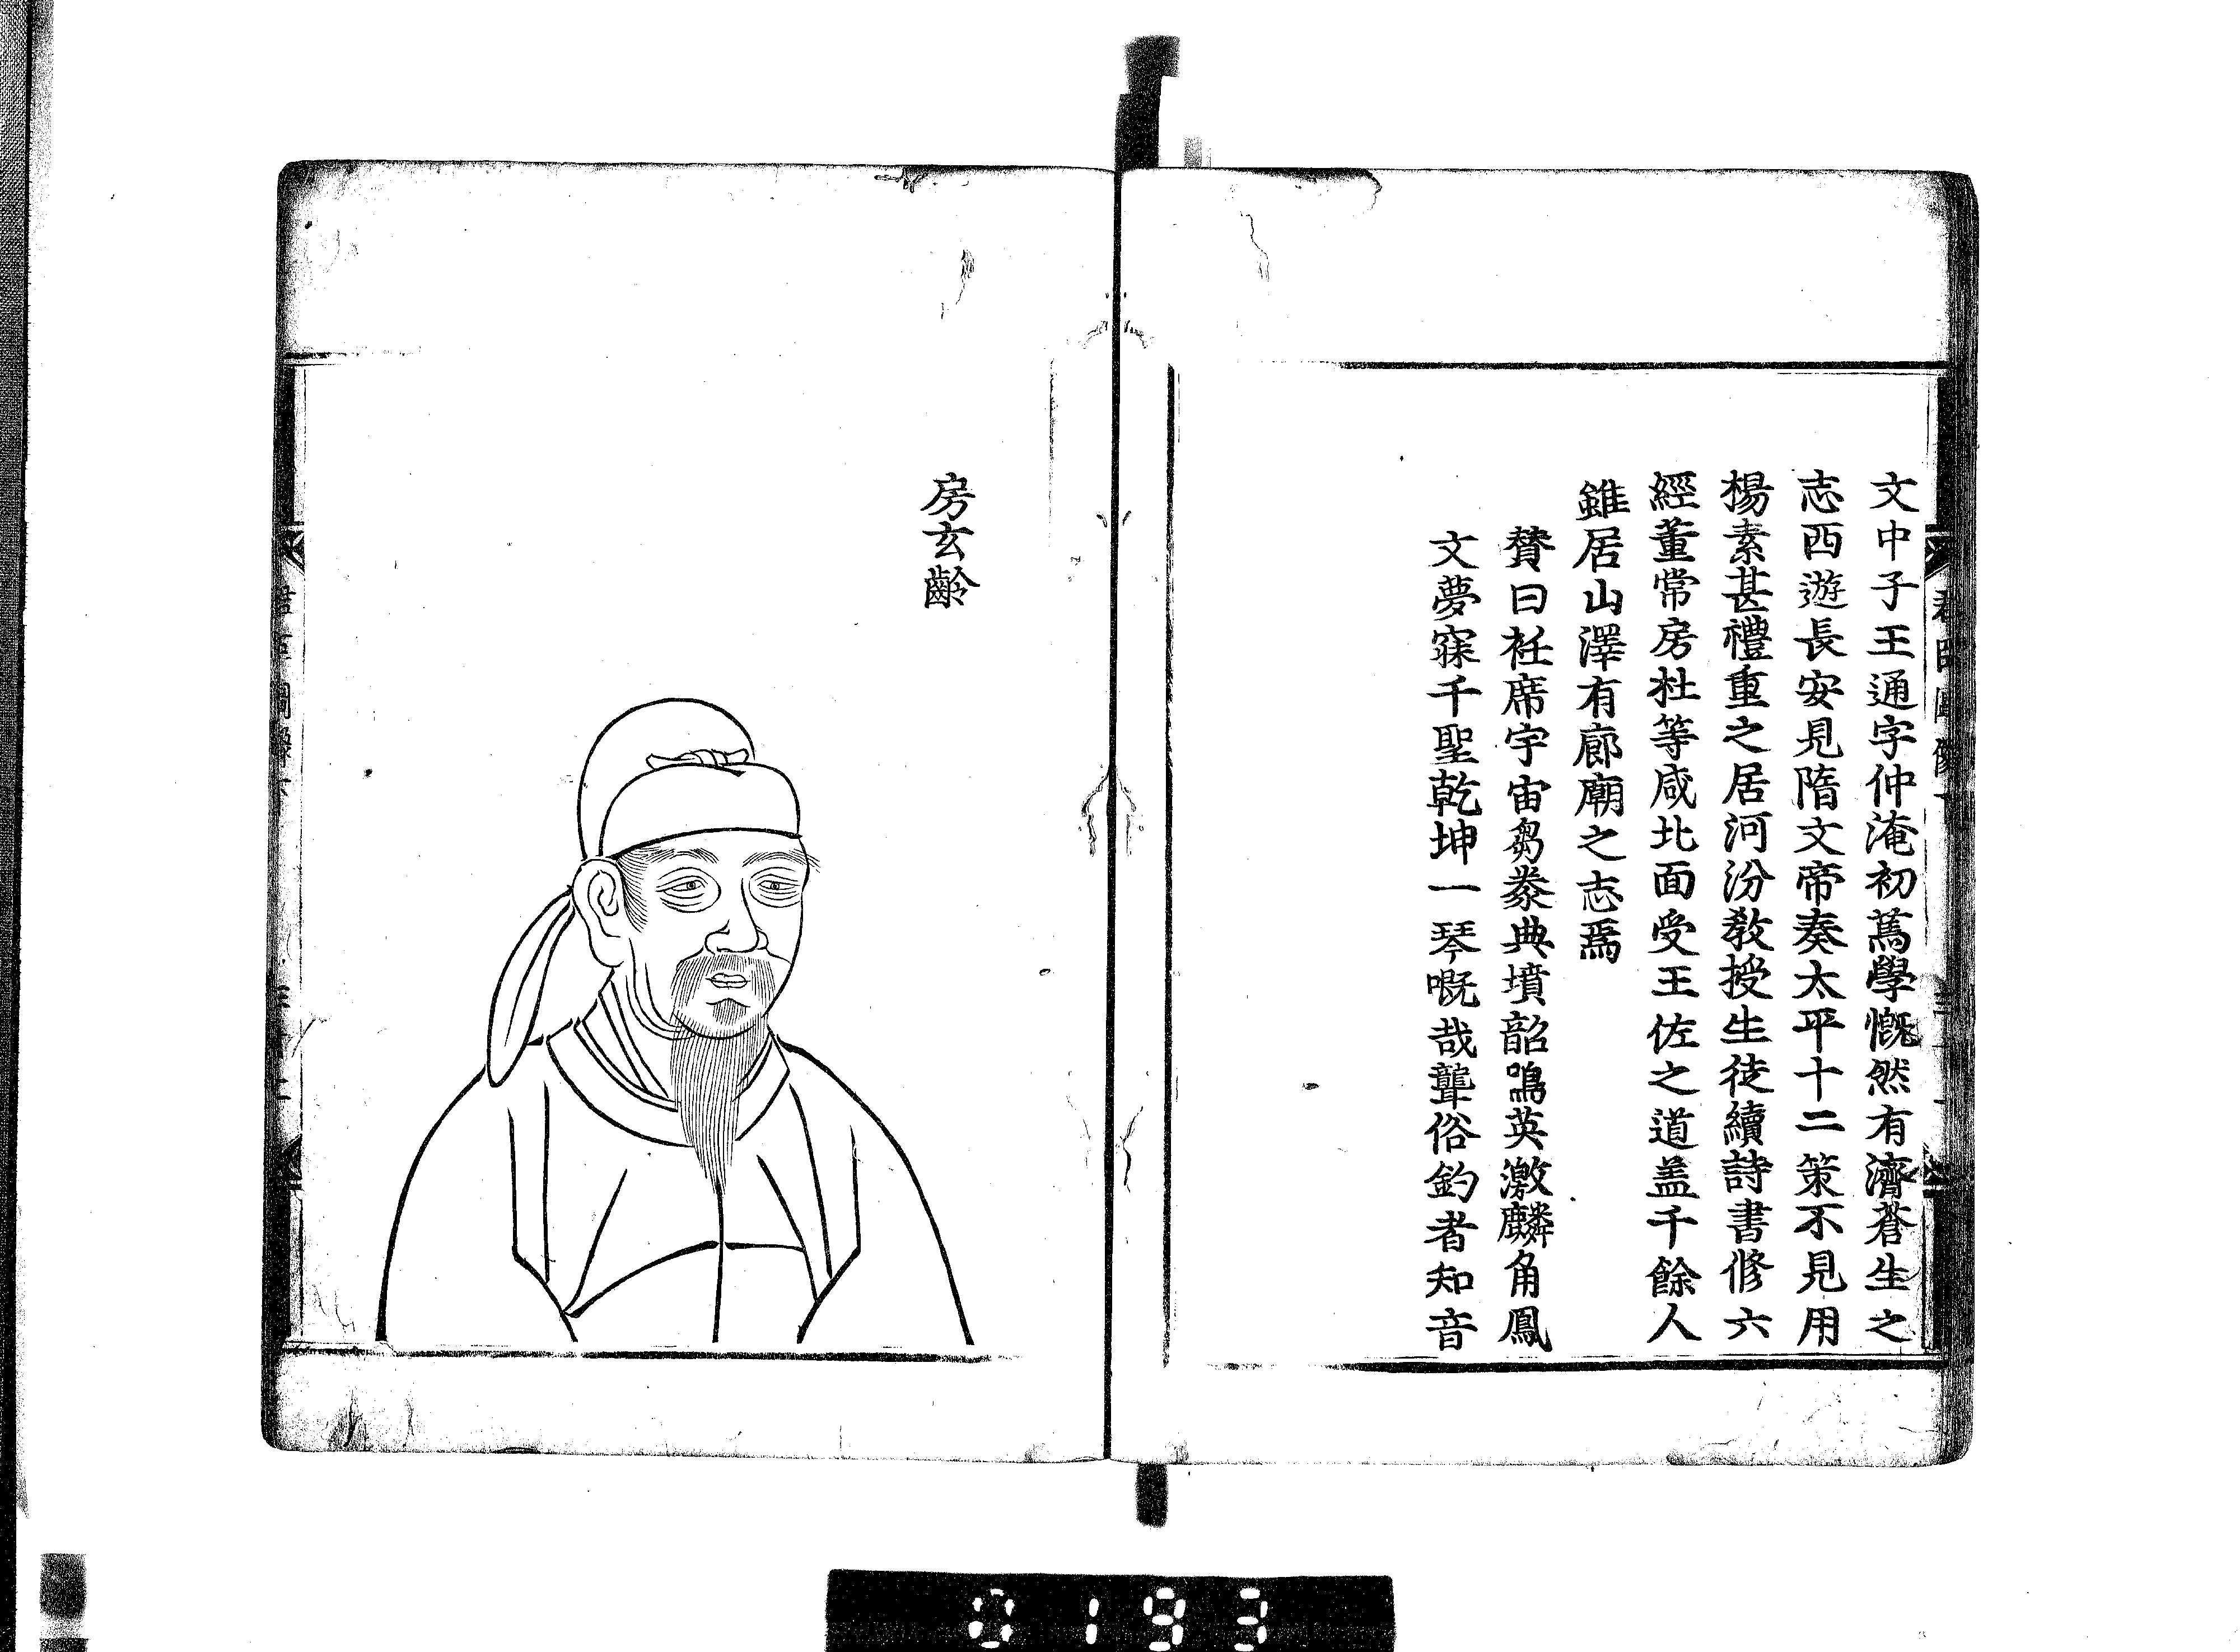 文中子王通字仲淹初篤學慨然有濟蒼生之
志西遊長安見隋文帝奏太平十二策不見用
楊素甚禮重之居河汾敎授生徒續詩書修六
經董常房杜等咸北面受王佐之道盖千餘人
雖居山澤有廊廟之志焉
賛曰衽席宇宙芻豢典墳韶鳴英激麟角鳳
文夢寐千聖乾坤一琴嘅哉聾俗釣者知音
房玄齡
0193